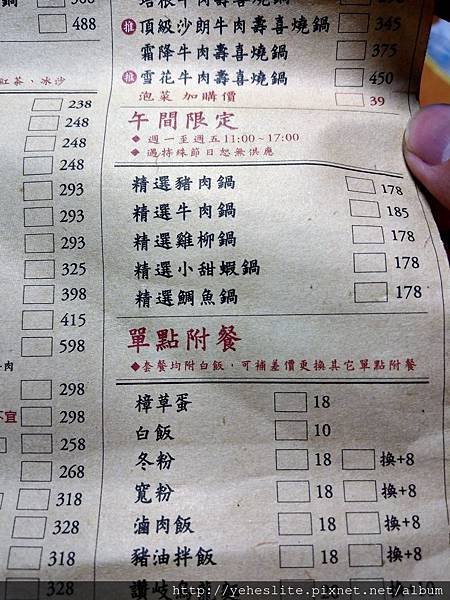 488
紅茶、冰沙
238
248
248
248
293
293
293
325
398
415
598
肉
298
不宜 298
258
268
318
328
318
328
推 頂級沙朗牛肉壽喜燒鍋 345
霜降牛肉壽喜燒鍋 375
推 雪花牛肉壽喜燒鍋 450
泡菜 加購價 39
午間限定
◆ 週一至週五11:00~17:00
◆ 遇特殊節日恕無供應
精選豬肉鍋 178
精選牛肉鍋 185
精選雞柳鍋 178
精選小甜蝦鍋 178
精選鯛魚鍋 178
單點附餐
◆套餐均附白飯，可補差價更換其它單點附餐
樟草蛋 18
白飯 10
冬粉 18 換+8
寬粉 18 換+8
滷肉飯 18 換+8
豬油拌飯 18 換+8
http://yeheslite.pixnet.net/album